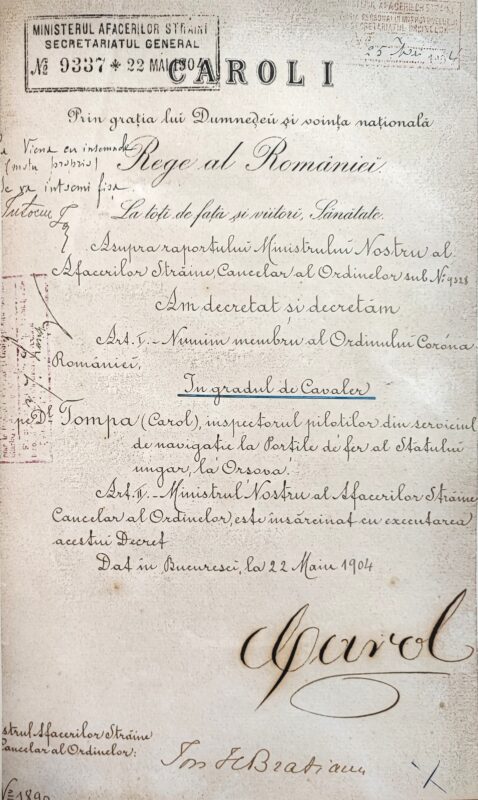 MINISTERUL AFACERILOR STRĂINE
SECRETARIATUL GENERAL
№ 9337 * 22 MAI 1904
CAROL I
Prin grația lui Dumneḑeŭ și voința națională
Viena cu insemnele
(motu proprio)
Rege al României.
La toți de față și viitori, Sănătate.
Asupra raportului Ministrului Nostru al
Afacerilor Străine, Cancelar al Ordinelor sub №
Am decretat și decretăm
Art. I. - Numim membru al Ordinului Coróna
României,
In gradul de Cavaler
pe Dl Tompa (Carol), inspectorul piloților din serviciul
de navigație la Porțile de fer al Statului
ungar, la Orșova.
Art. II. - Ministrul Nostru al Afacerilor Străine
Cancelar al Ordinelor, este însărcinat cu executarea
acestui Decret
Dat în Bucuresci, la 22 Maiu 1904
Carol
strul Afacerilor Străine
Cancelar al Ordinelor:
Ion I C Bratianu